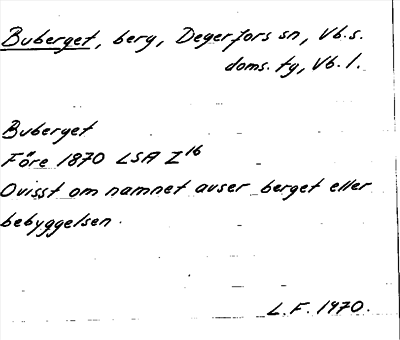 Buberget, berg, Degerfors sn, Vb.s.
doms. tg, Vb. l.
Buberget
Före 1870 LSA Z16
Ovisst om namnet avser berget eller
bebyggelsen.
L.F. 1970.